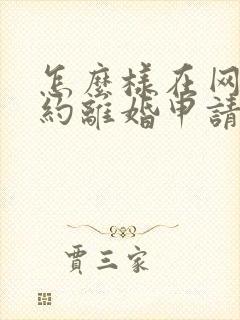 怎麼樣在网
約離婚申請
賈三家